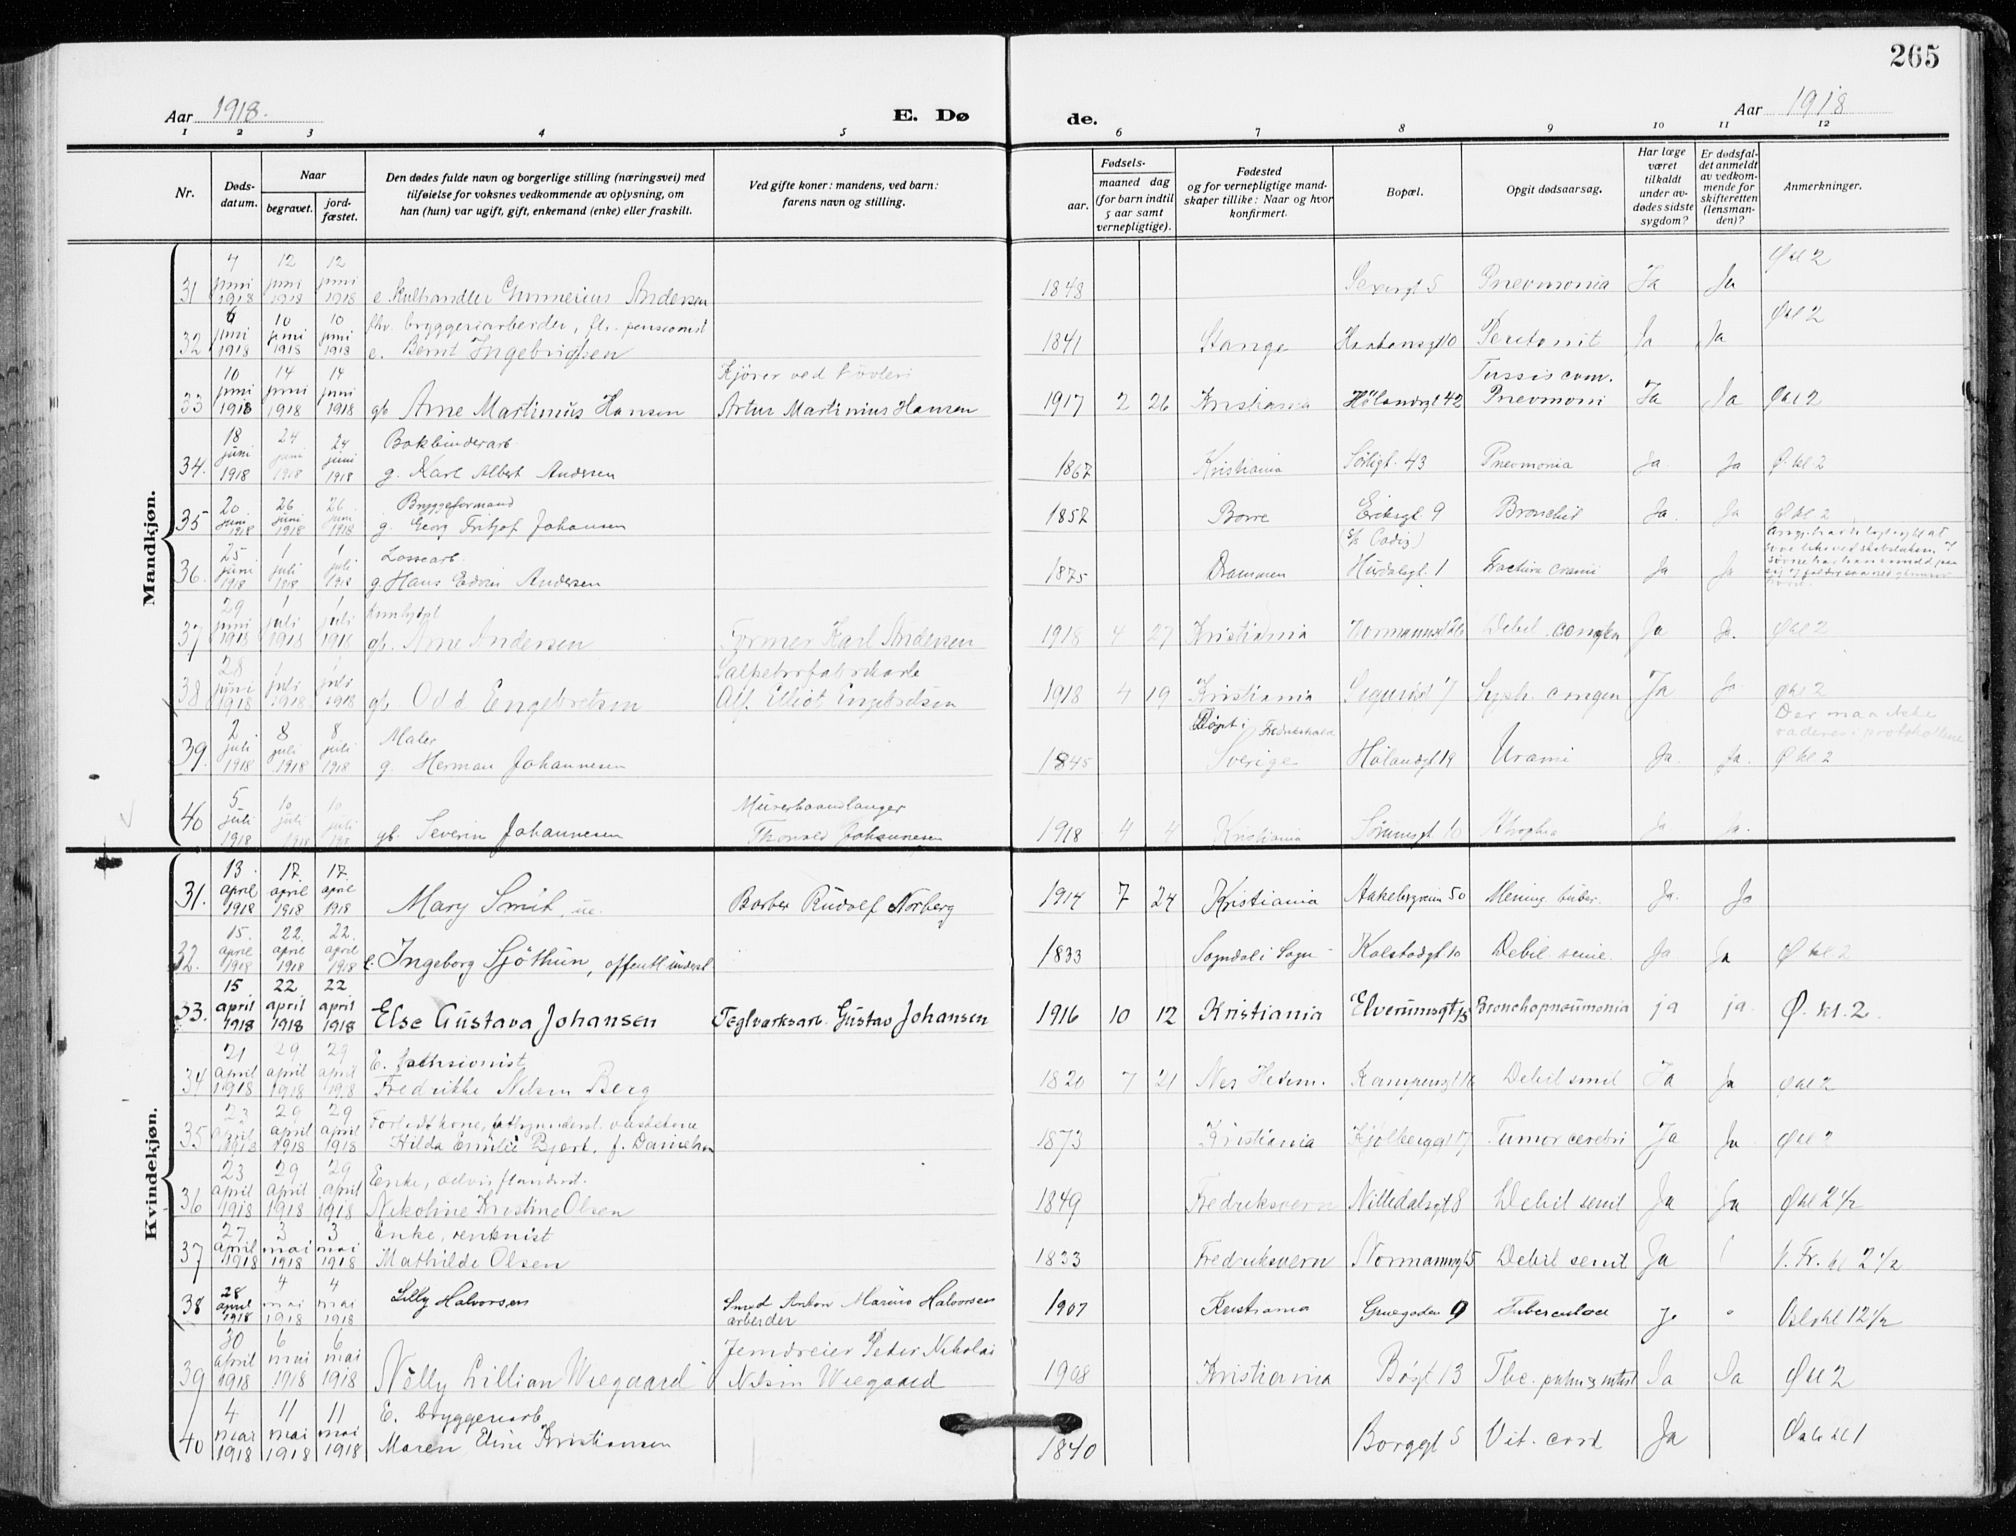 265
Aar 1918. E. Dø de. Aar 1918
1 2 3 4 5 6 7 8 9 10 11 12
Nr. Døds-datum. Naar begravet. jord-fæstet. Den dødes fulde navn og borgerlige stilling (næringsvei) med tilføielse for voksnes vedkommende av oplysning, om han (hun) var ugift, gift, enkemand (enke) eller fraskilt. Ved gifte koner: mandens, ved barn: farens navn og stilling. Fødsels- aar. maaned dag (for barn indtil 5 aar samt vernepligtige). Fødested og for vernepligtige mand-skaper tillike: Naar og hvor konfirmert. Bopæl. Opgit dødsaarsag. Har læge været tilkaldt under av-dødes sidste sygdom? Er dødsfal-det anmeldt av vedkom-mende for skifteretten (lensman-den)? Anmerkninger.
Mandkjøn.
31 7 juni 1918 12 juni 1918 12 juni 1918 e. Kulhandler Gunnerius Andersen 1848 5 Pneomonia Ja Ja Økl 2
32 6 juni 1918 10 juni 1918 10 juni 1918 fhv. bryggeriarbeider, pensionist e. Bernt Ingebrigtsen 1841 Stange 10 Peritonit Ja Ja Økl 2
33 10 juni 1918 14 juni 1918 14 juni 1918 gb Arne Martinius Hansen Kjører ved Artur Martinius Hansen 1917 2 26 Kristiania Hølandsgt 42 Tussis conv. Pneomoni Ja Ja Økl 2
34. 18 juni 1918 24 juni 1918 24 juni 1918 Bokbinderarb. g. Karl Albert Andersen 1867 Kristiania Sørligt. 43 Pneomonia Ja. Ja Ø. kl 2
35 20 juni 1918 26 juni 1918 26 juni 1918 Bryggeformand g. Georg Fritjof Johansen 1857 Borre Eriksgt 9 Bronchit Ja. Ja Ø kl 2
36. 25 juni 1918 1 juli 1918 1 juli 1918 Lossearb. g. Hans Edvin Andersen 1875 Drammen (S/S Cadiz) Hurdalsgt. 1 Fractura cranii Ja Ja
37 29 juni 1918 1 juli 1918 1 juli 1918 gb. Arne Andersen Former Karl Andersen 1918 4 27 Kristiania Debil. congen Ja Ja. Økl 2
38 28 juni 1918 1 juli 1918 1 juli 1918 gb Odd Engebretsen Alf. Elliot Engebretsen 1918 4 19 Kristiania 7 Syph. congen Ja Ja Økl 2
39. 2 juli 1918 8 juli 1918 8 juli 1918 Maler g. Herman Johannesen 1845 Døpt i Fredrikshald Sverige Hølandsgt 19 Urami Ja. Ja. Ø kl 2 Der maa ikke raderes i protokollene
40 5 juli 1918 10 juli 1918 10 juli 1918 gb. Severin Johannesen Murerhaandlanger Thorvald Johannesen 1918 4 4 Kristiania Sørumsgt 10 Atrophia Ja Ja.
Kvindekjøn.
31. 13. april 1918 17. april 1918 17. april 1918 Mary Smit, ue. Barber Rudolf Norberg 1914 7 24 Kristiania 50 Mening. tuber. Ja. Ja
32. 15. april 1918 22. april 1918 22. april 1918 e. Ingeborg Sjøthun, offentl underst. 1833 Sogndal i Sogn Kalstadgt 10 Debil. senil. Ja Ja Ø kl 2
33. 15 april 1918 22 april 1918 22 april 1918 Else Gustava Johansen Teglverksarb. Gustav Johansen 1916 10 12 Kristiania Elverumsgt 15 Bronchopneumonia ja ja. Ø. kl. 2.
34 21 april 1918 29 april 1918 29 april 1918 E. pensionist Fredrikke Nilsen Berg 1820 7 21 Nes Hedm. Kampensgt 16 Debil senil Ja Ja Økl 2
35 23 april 1918 29 april 1918 29 april 1918 Forladt kone, Hilda Emilie Bjert. f. Danielsen 1873 Kristiania Kjølberggt 17 Tumor cerebri Ja Ja Økl 2
36 23 april 1918 29 april 1918 29 april 1918 Enke, Nikoline Kristine Olsen 1849 Fredriksvern Nittedalsgt 8 Debil senil Ja Ja Økl 2 1/2
37 27 april 1918 3 mai 1918 3 mai 1918 Enke, rentnist Mathilde Olsen 1833 Fredriksvern Normannsgt 5 Debil senil Ja V. Fr. kl 2 1/2
38 28 april 1918 4 mai 1918 4 mai 1918 Lilly Halvorsen Smed Anton Marius Halvorsen arbeider 1907 Kristiania Gruegaden 9 Tuberculose Ja Oslo kl 12 1/2
39 30 april 1918 6 mai 1918 6 mai 1918 Nelly Lillian Wiegaard Jerndreier Peder Nikolai Nilsen Wiegaard 1908 Kristiania Bøgt 13 Tbc. pulm & intest Ja Ja Økl 2
40 4 mai 1918 11 mai 1918 11 mai 1918 E. bryggeriarb. Maren Eline Kristiansen 1840 Borggt 5 Vit. cord Ja kl 1